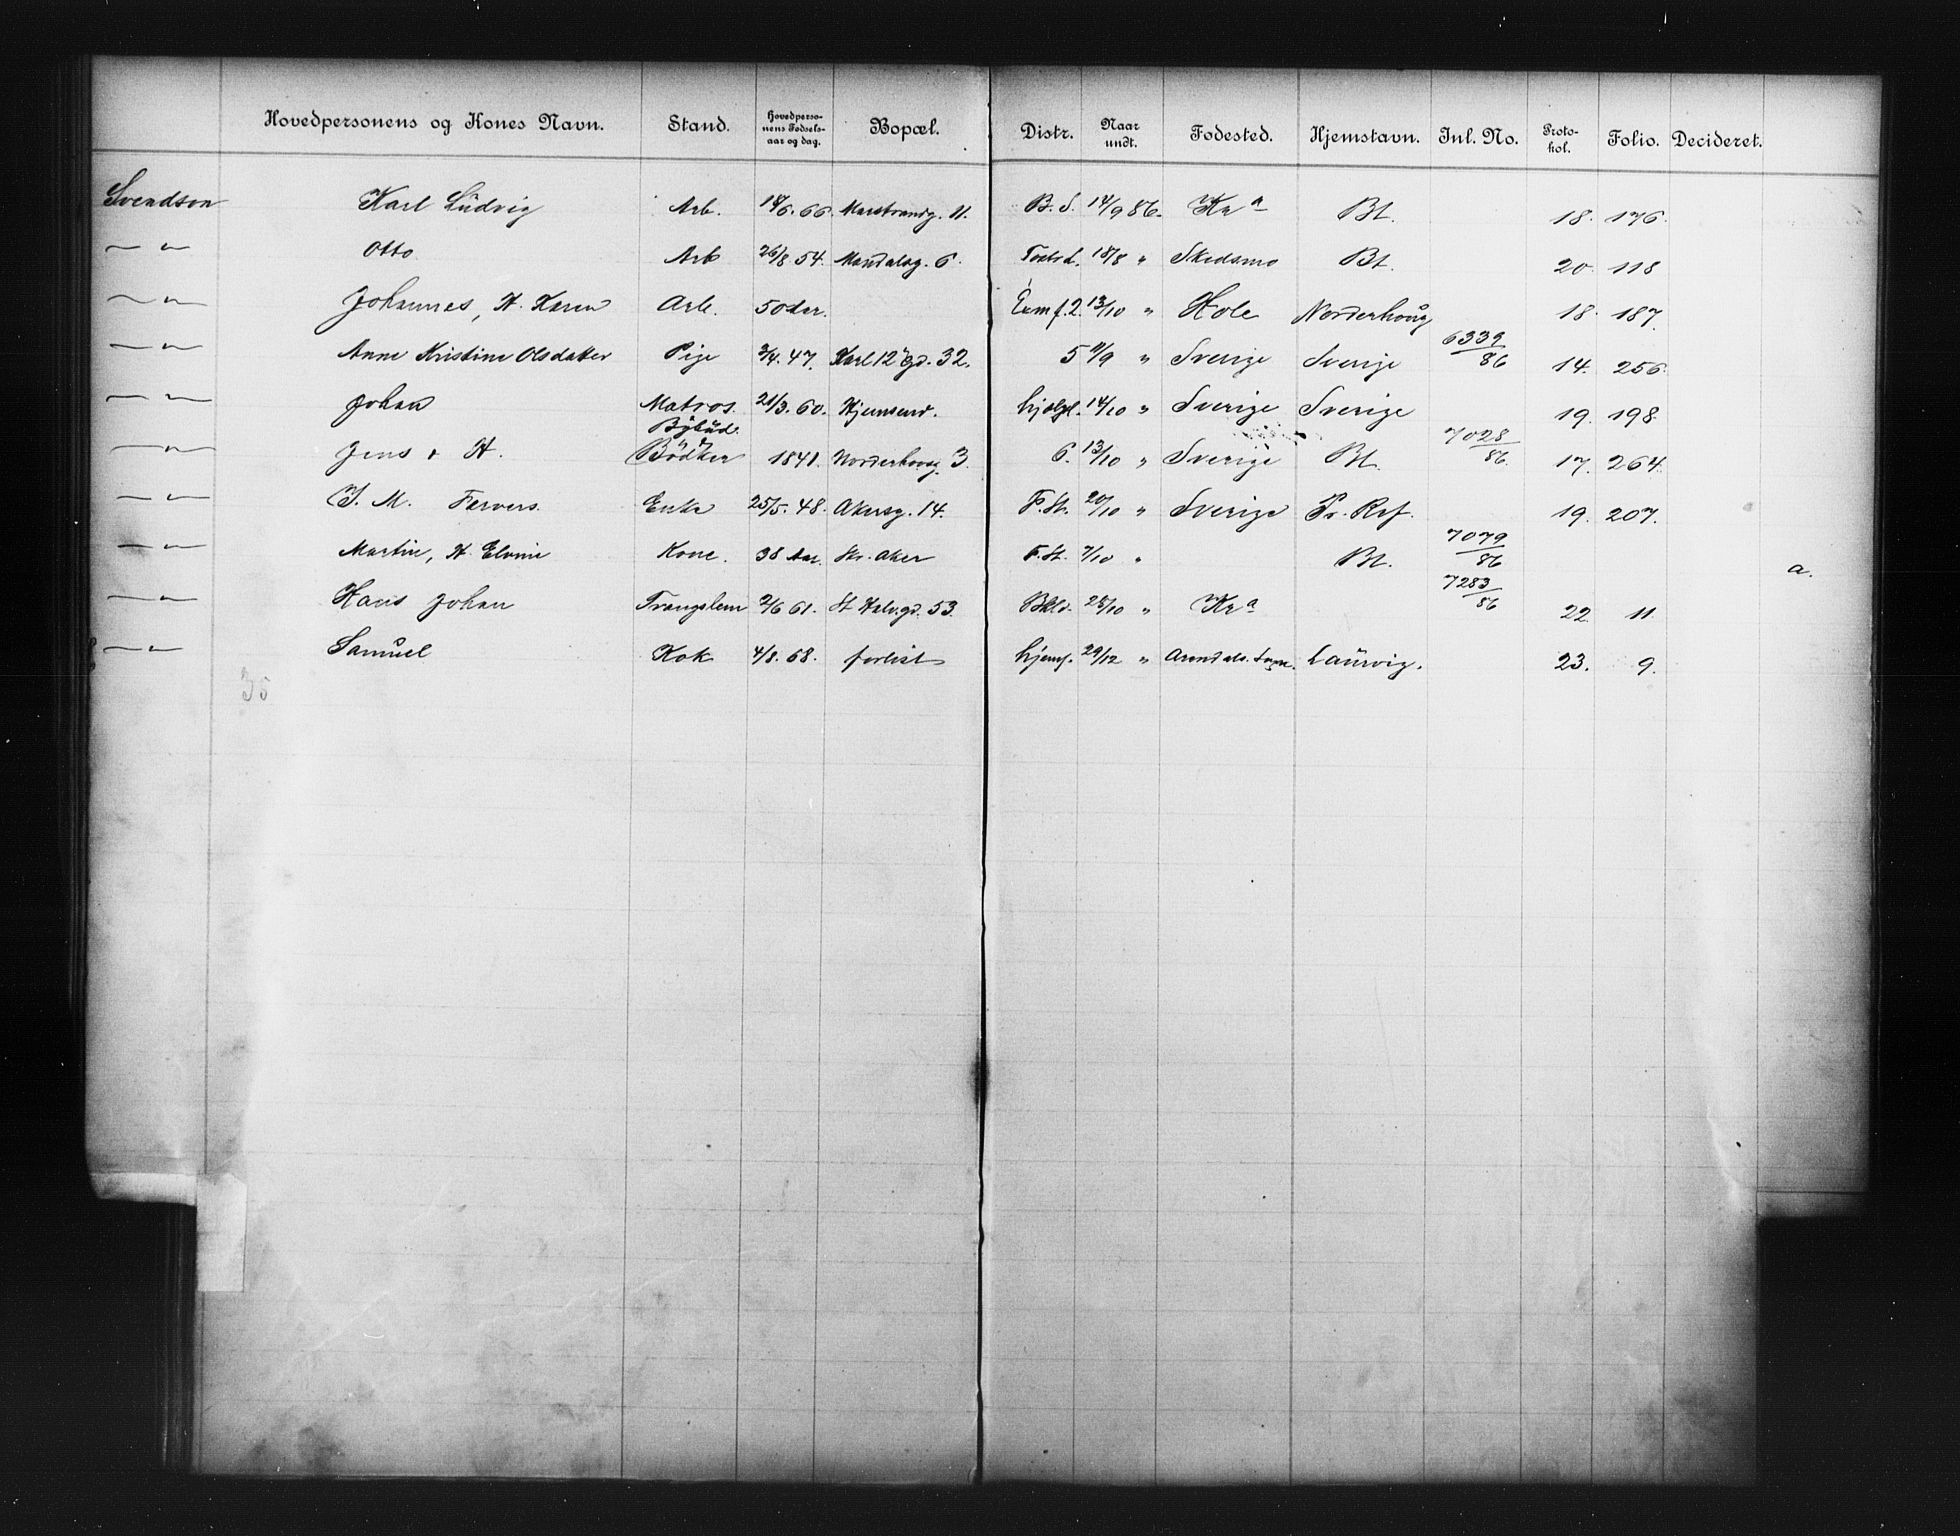 Hovedpersonens og Kones Navn. Stand. Hovedpersonens Fødselsaar og dag. Bopæl. Distr. Naar undt. Fødested. Hjemstavn. Inl. No. Protokol. Folio. Decideret.
Svendson Karl Ludvig Arb. 18/6. 66. Marstrandg. 11. B. S. 14/9 86. Kr a Bt. 18. 176.
— " — Otto Arb 26/8 54. Mandalsg. 6. 18/8 " Skedsmo Bt. 20. 118
— " — Johannes, H. Karen Arb. 50 aar. 13/10 " Hole Norderhoug 18. 187.
— " — Anne Kristine Olsdatter Pige 3/4. 47. Karl 12 gd. 32. 5 11/9 " Sverige Sverige 6339/86 14. 256.
— " — Johan Matros. 21/3. 60. Hjemsend. hjslgt. 14/10 " Sverige Sverige 19. 198.
— " — Jens & H. Bybud. Bödker 1841. Norderhovsg. 3. 6. 13/10 " Sverige Bt. 7028/86 17. 264.
— " — J. M. Farvers. Enke 25/5. 48. Akersg. 14. F. St. 20/10 " Sverige Pr. Ref. 19. 207.
— " — Martin, H. Elvine Kone. 38 Aar. Str. Aker F. St. 7/10 " Bt. 7079/86 a.
— " — Hans Johan Trangslem 2/6 61. St Halv. gd. 53. Bkld. 25/10 " Kr a 7283/86 22 11.
— " — Samuel Kok 4/8. 68. forlist hjemf. 29/12 " Arendals. Laurvig. 23. 9.
35